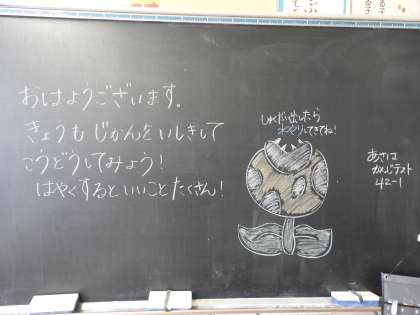 おはようございます。
きょうも じかんをいしきして
こうどうしてみよう!
はやくすると いいこと たくさん!
しゅくだい出したら
水やりしてきてね!
あさは
かんじテスト
42-1